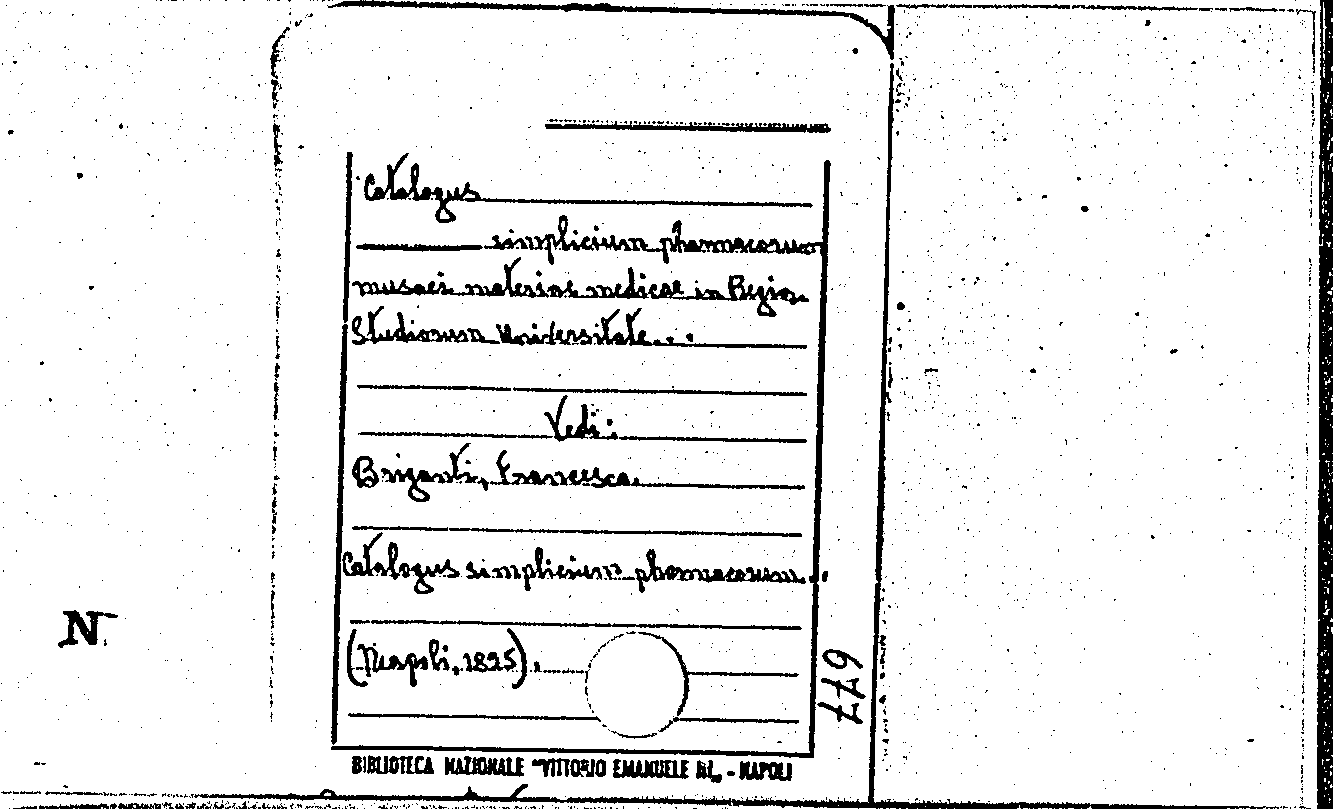 Catalogus
simplicium pharmacorum
musaei materiae medicae in Regia
Studiorum Universitate...
Vedi:
Briganti, Francesco.
Catalogus simplicium pharmacorum...
(Neapoli, 1825).
677
N
BIBLIOTECA NAZIONALE "VITTORIO EMANUELE III„ - NAPOLI